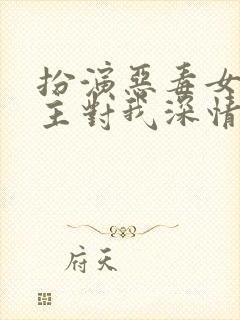 扮演惡毒女
主對我深情
府天